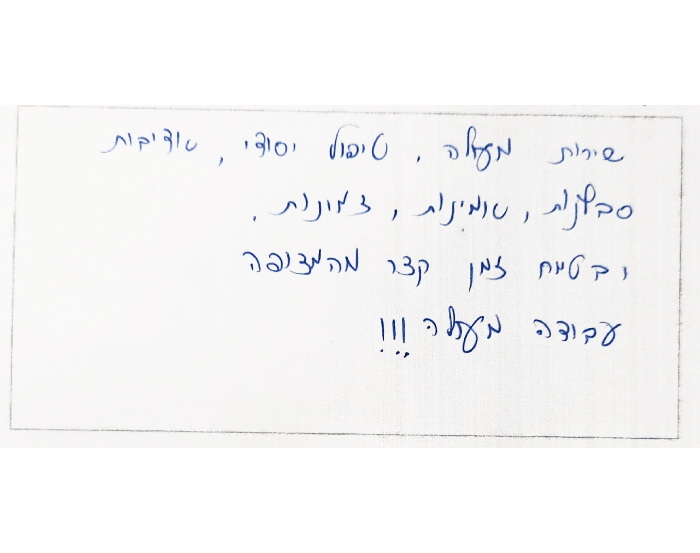 שירות מעולה, טיפול יסודי, אדיבות
סבלנות, אמינות, זמינות.
ובטווח זמן קצר מהמצופה
עבודה מעולה!!!